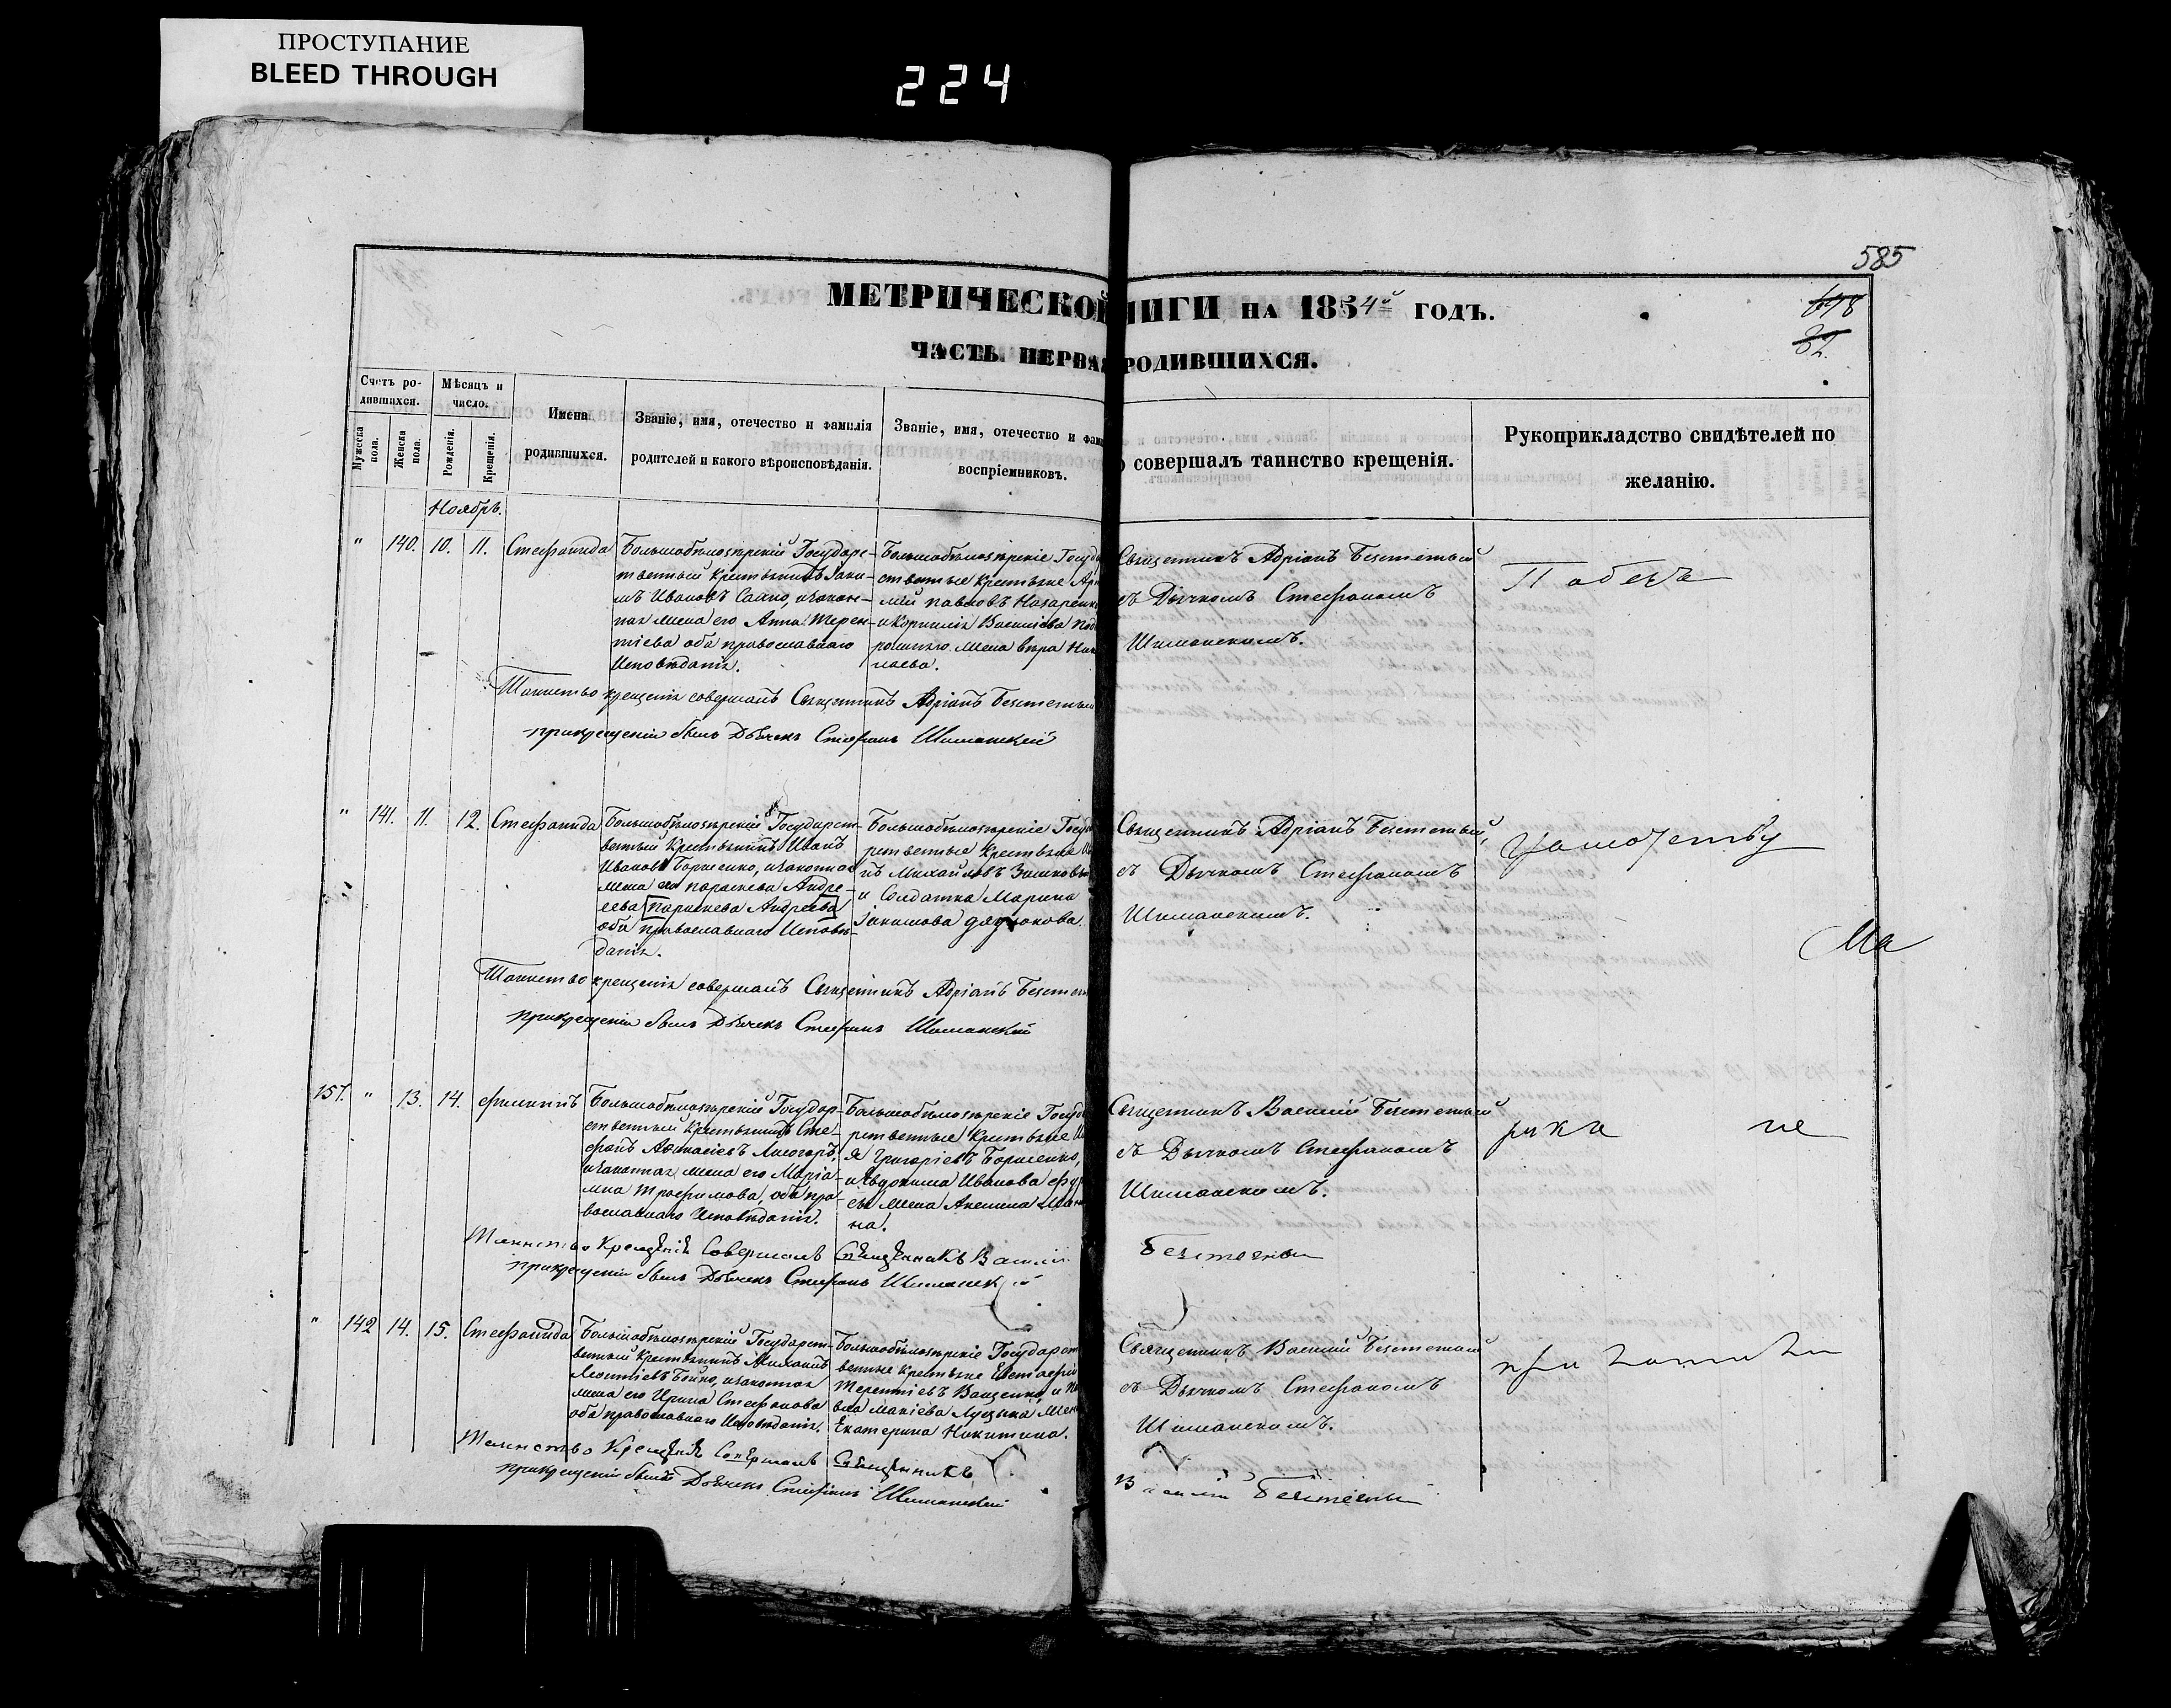 ПРОСТУПАНИЕ
BLEED THROUGH
224
585
МЕТРИЧЕСКОЙ НИГИ НА 1854й ГОДЪ.
678
82.
ЧАСТЬ ПЕРВАЯ РОДИВШИХСЯ.
Счетъ ро-
дившихся.
Мужеска пола.
Женска пола.
Мѣсяцъ и
число.
Рожденія.
Крещенія.
Имена
родившихся.
Званіе, имя, отечество и фамилія
родителей и какого вѣроисповѣданія.
Званіе, имя, отечество и фам
воспріемниковъ.
совершалъ таинство крещенія.
Рукоприкладство свидѣтелей по
желанію.
Ноябрь.
" 140. 10. 11. Стефанида
Большобѣлозѣрскій Государс-
твенный крестьянинъ Іаки-
мъ Ивановъ Сайко, изакон-
ная жена его Анна Терен-
тіева оба православнаго
Исповѣданія.
Большобѣлозѣрскіе Госуд
ственные крестьяне
Павловъ Назаренк
и Корнилія Василіева
жена Вѣра Ник
лаева.
Священникъ Адріанъ Безсметный
съ Дьячкомъ Стефаномъ
Шиманскимъ.
Таинство крещенія совершалъ Священникъ Адріанъ Безсметны
прикрещеніи былъ Дьячекъ Стефанъ Шиманскій
" 141. 11. 12. Стефанида
Большобѣлозѣрскій Государст-
венный Крестьянинъ Иванъ
Ивановъ Борисенко, изаконная
жена его Параскева Андре-
ева Параскева Андреева
оба православнаго Исповѣ-
данія.
Большобѣлозѣрскіе Госуд
рственные Крестьяне
Михайловъ
и Солдатка Марина
Іакимова
Священникъ Адріанъ Безсметный,
съ Дьячкомъ Стефаномъ
Шиманскимъ.
Ма
Таинство крещенія совершалъ Священникъ Адріанъ Безсмет
прикрещеніи былъ Дьячекъ Стефанъ Шиманскій
157. " 13. 14. Филиппъ
Большобѣлозѣрскій Государ-
ственный Крестьянинъ Сте-
фанъ Афанасіевъ Лисогоръ,
изаконная жена его Маріа-
мна Трофимова, оба пра-
вославнаго Исповѣданія.
Большобѣлозѣрскіе Госуда
рственные Крестьяне И
я Григоріевъ Борисенко,
и Евдокима Иванова
жена Акилина
на.
Священникъ Василій Безсметный
съ Дьячкомъ Стефаномъ
Шиманскимъ.
рука не
Таинство Крещенія Совершалъ Священникъ Василій
Безсметный
прикрещеніи былъ Дьячекъ Стефанъ Шиманскій
" 142 14. 15. Стефанида
Большобѣлозѣрскій Государст-
венный Крестьянинъ Михаилъ
Леонтіевъ Бойко, изаконная
жена его Ирина Стефанова
оба православнаго Исповѣданія.
Большобѣлозѣрскіе Государст
венные Крестьяне Евстафій
Терентіевъ Ващенко, и Па
вла Макіева Луцыка Жен
Екатерина Никитина.
Священникъ Василій Безсметный
съ Дьячкомъ Стефаномъ
Шиманскимъ.
Таинство Крещенія Совершалъ Священникъ
Василій Безсметный
прикрещеніи былъ Дьячекъ Стефанъ Шиманскій